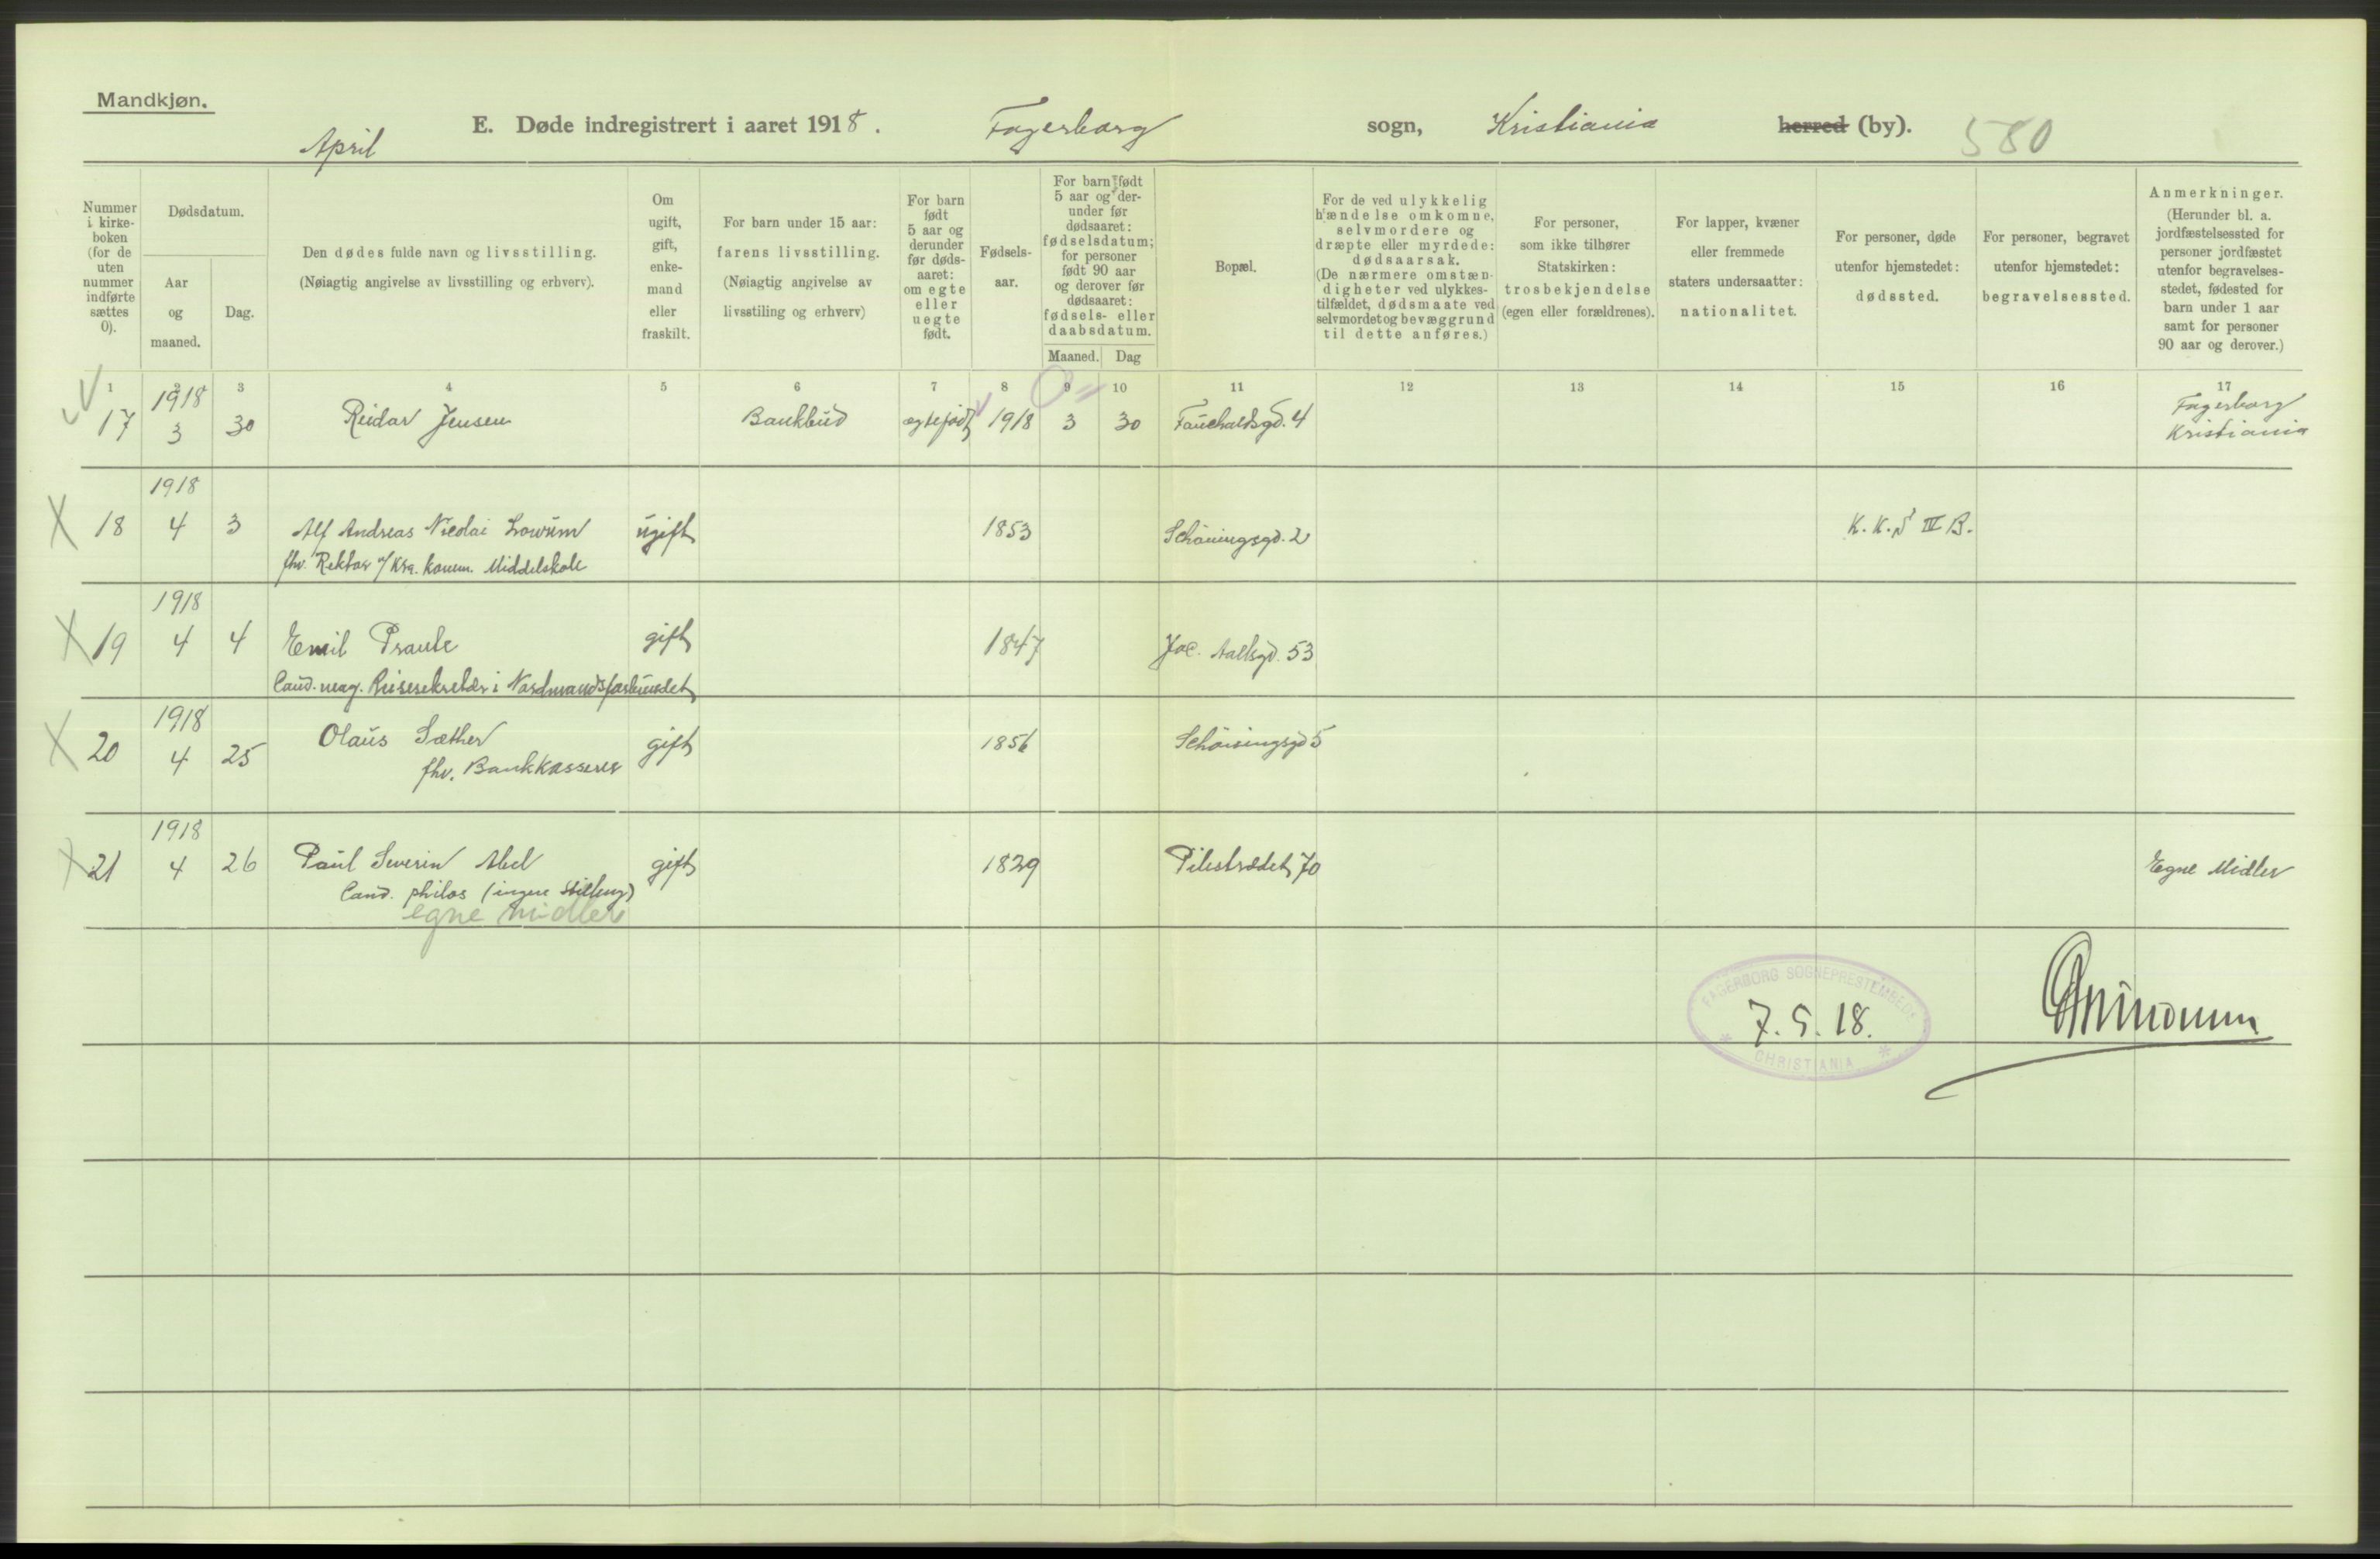 Mandkjøn.
E. Døde indregistrert i aaret 1918. Fagerborg sogn, Kristiania herred (by). 580
April
Nummer i kirke-boken (for de uten nummer indførte sættes 0).
Dødsdatum.
Aar og maaned.
Dag.
Den dødes fulde navn og livsstilling.
(Nøiagtig angivelse av livsstilling og erhverv).
Om ugift, gift, enke-mand eller fraskilt.
For barn under 15 aar: farens livsstilling.
(Nøiagtig angivelse av livsstiling og erhverv)
For barn født 5 aar og derunder før døds-aaret: om egte eller uegte født.
Fødsels-aar.
For barn født 5 aar og der-under før dødsaaret: fødselsdatum; for personer født 90 aar og derover før dødsaaret: fødsels- eller daabsdatum.
Maaned. Dag
Bopæl.
For de ved ulykkelig hændelse omkomne, selvmordere og dræpte eller myrdede: dødsaarsak.
(De nærmere omstæn-digheter ved ulykkes-tilfældet, dødsmaate ved selvmordet og bevæggrund til dette anføres.)
For personer, som ikke tilhører Statskirken: trosbekjendelse (egen eller forældrenes).
For lapper, kvæner eller fremmede staters undersaatter: nationalitet.
For personer, døde utenfor hjemstedet: dødssted.
For personer, begravet utenfor hjemstedet: begravelsessted.
Anmerkninger.
(Herunder bl. a. jordfæstelsessted for personer jordfæstet utenfor begravelses-stedet, fødested for barn under 1 aar samt for personer 90 aar og derover.)
1 2 3 4 5 6 7 8 9 10 11 12 13 14 15 16 17
1918
17 3 30 Reidar Jensen Bankbud egtefødt 1918 3 30 Fauchaldsgd. 4 Fagerborg
Kristiania
1918
18 4 3 Alf Andreas Nicolai ugift 1853 Schøningsgd. 2 K. K. S III B.
fhv. Rektor v/ Kra. komm. Middelskole
1918
19 4 4 Emil gift 1847 Jac. Aallsgd. 53
Cand. mag. Reisesekretær i Nordmandsforbundet
1918
20 4 25 Olaus Sæther gift 1856 Schøningsgd 5
fhv. Bankkasserer
1918
21 4 26 Paul Severin Abel gift 1829 Pilestrædet 70 Egne Midler
Cand. philos (ingen stilling)
egne midler
FAGERBORG SOGNEPRESTEMBEDE
7. 5. 18.
CHRISTIANIA